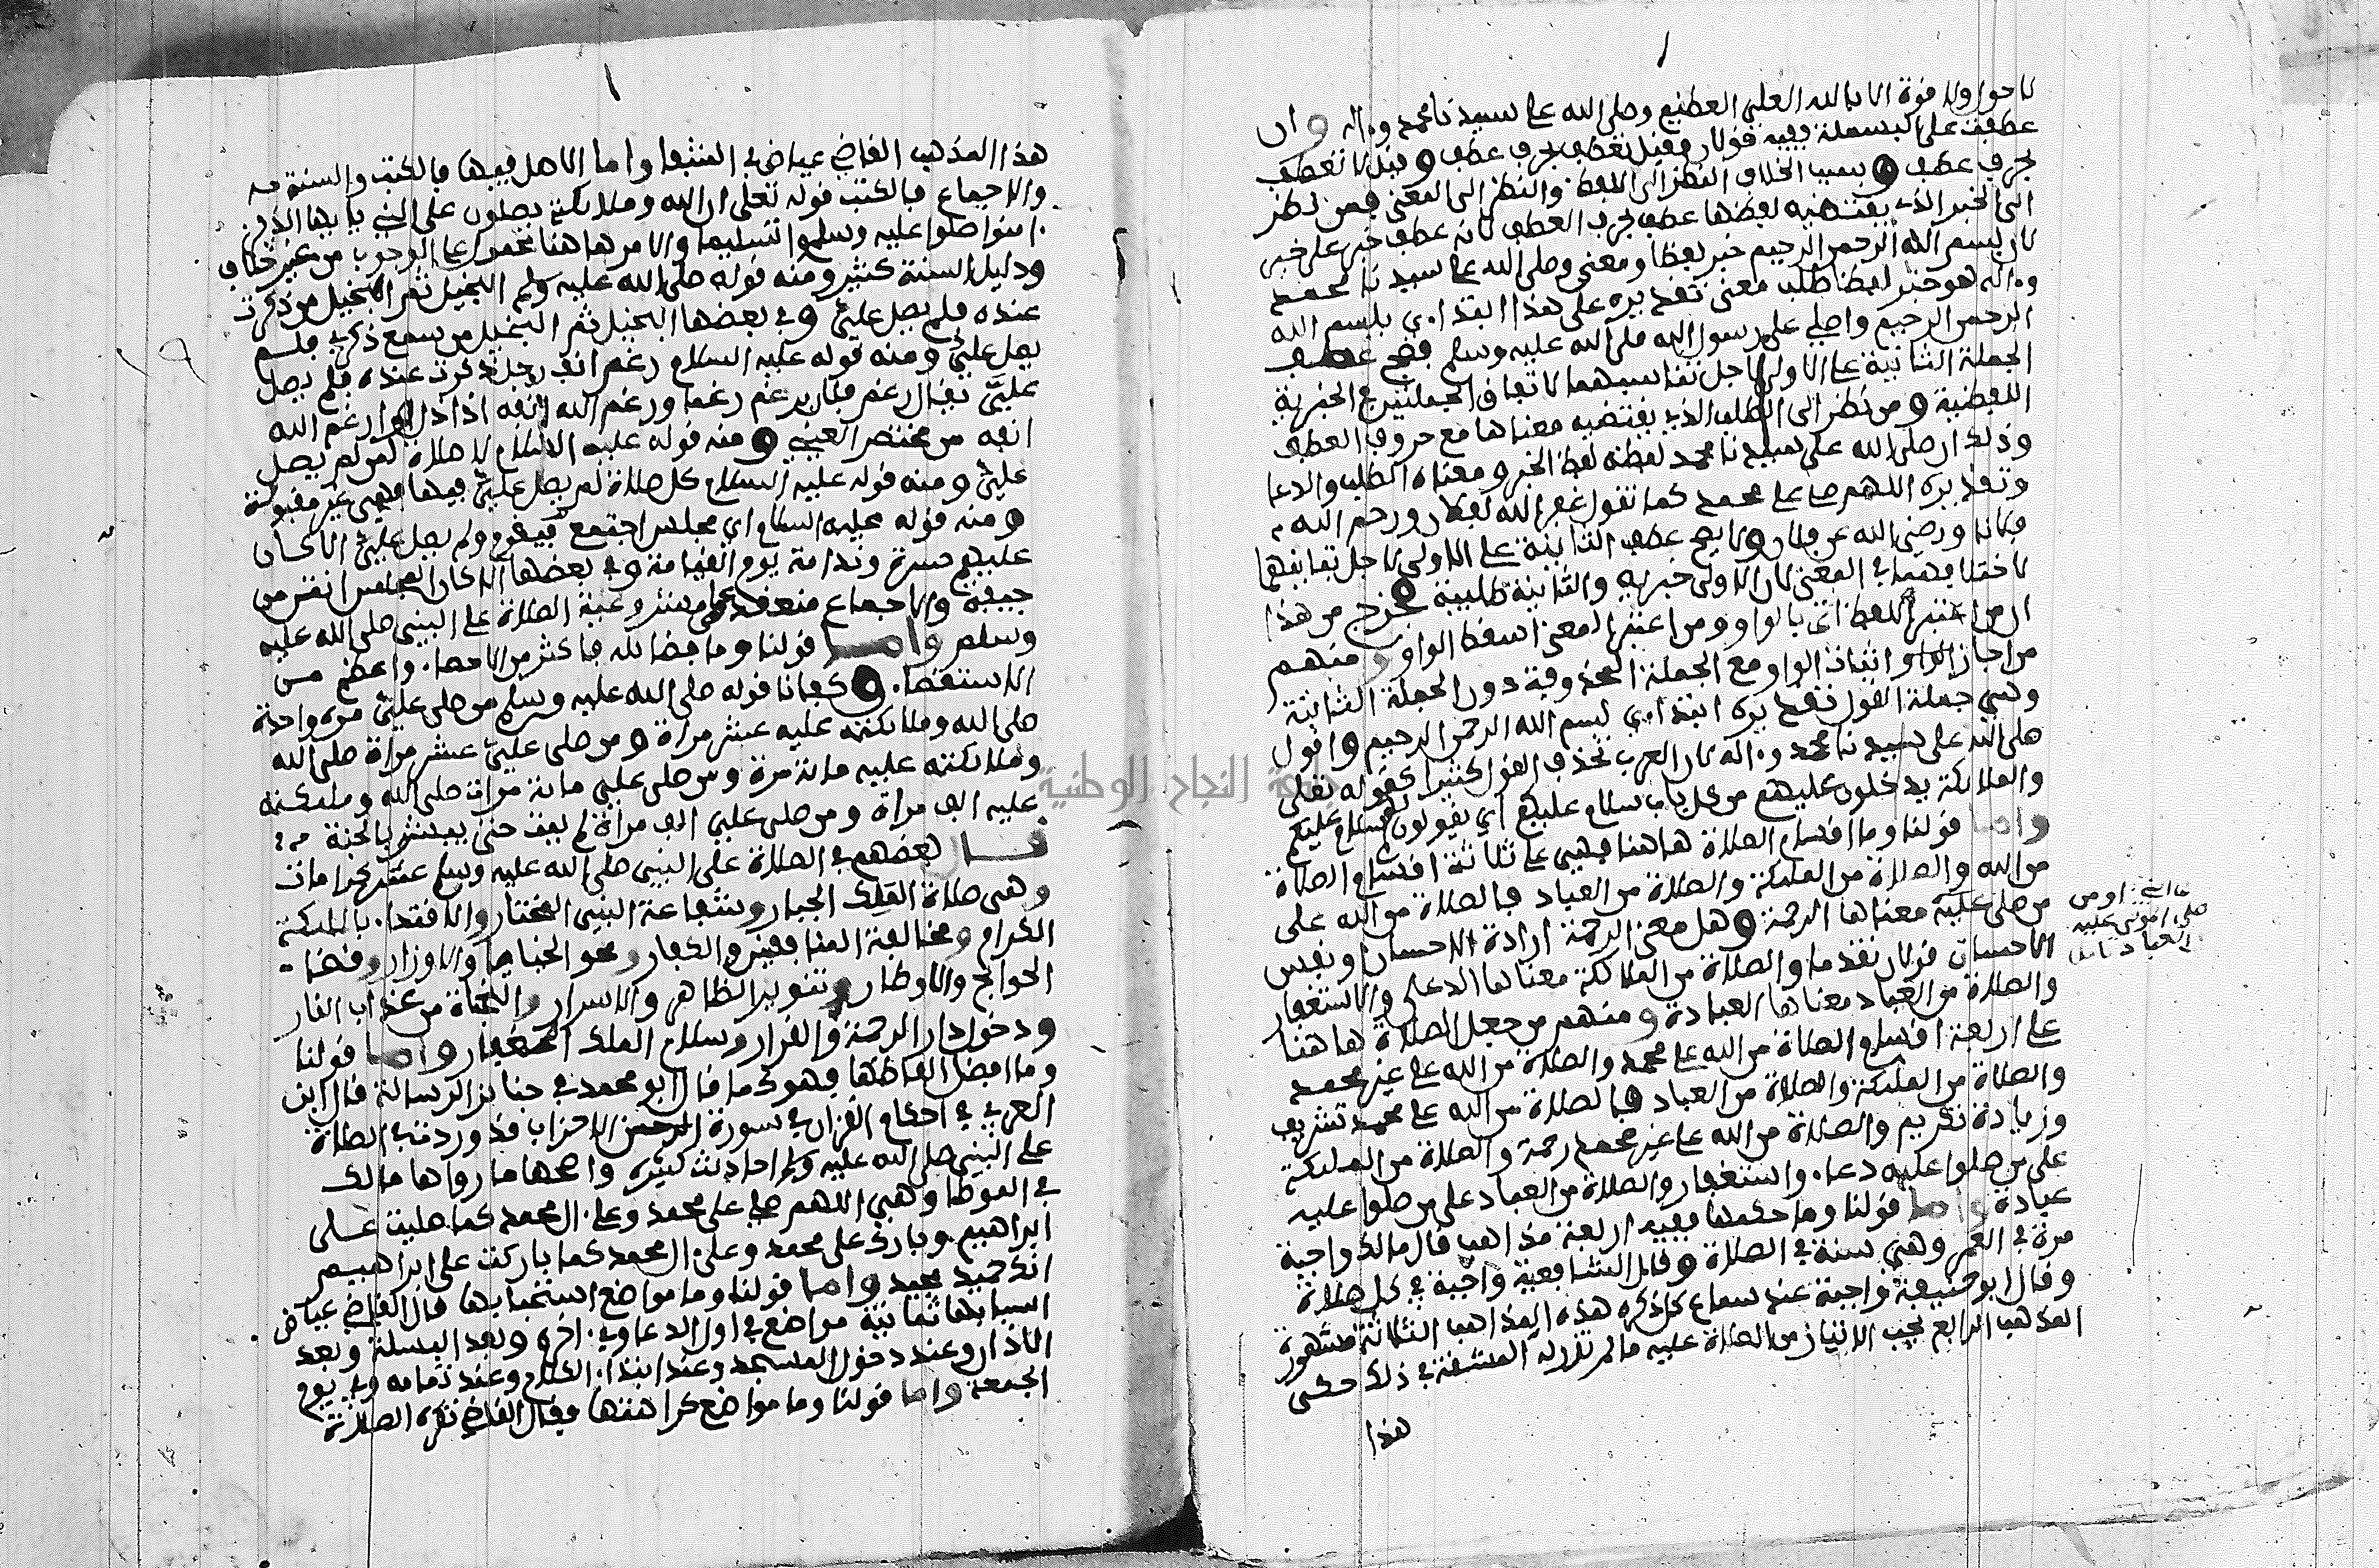 لا حول ولا قوة الا بالله العلي العظيم وصلى الله على سيدنا محمد وءاله وان
عطفت على البسملة ففيه قولان فقيل تعطف بحرف عطف وقيل لا تعطف
بحرف عطف وسبب الخلاف النظر الى اللفظ والنظر الى المعنى فمن نظر
الى الخبر الذي يقتضيه لفظها عطف بحرف العطف لانه عطف خبر على خبر
لان بسم الله الرحمن الرحيم خبر لفظا ومعنى وصلى الله على سيدنا محمد
وءاله هو خبر لفظا طلب معنى تقديره على هذا ابتداءي بسم الله
الرحمن الرحيم واصلي على رسول الله صلى الله عليه وسلم فصح عطف
الجملة الثانية على الاولى لاجل تناسبهما لاتفاق الجملتين في الخبرية
اللفظية ومن نظر الى الطلب الذي يقتضيه معناها منع حروف العطف
وذلك ان صلى الله على سيدنا محمد لفظه لفظ الخبر ومعناه الطلب والدعا
وتقديره اللهم صل على محمد كما تقول غفر الله لفلان ورحم الله
فلانا ورضي الله عن فلان ولا يصح عطف الثانية على الاولى لاجل
لاختلافهما في المعنى لان الاولى خبرية والثانية طلبية فخرج من هذا
ان من اعتبر اللفظ اتى بالواو ومن اعتبر المعنى اسقط الواو ومنهم
من اجاز اثبات الواو مع الجملة المحذوفة دون الجملة الثانية
وهي جملة القول تقديره ابتداءي بسم الله الرحمن الرحيم واقول
صلى الله على سيدنا محمد وءاله لان العرب تحذف القول كثيرا كقوله تعلى
والملائكة يدخلون عليهم من كل باب سلام عليكم اي يقولون سلام عليكم
واما قولنا وما اقسام الصلاة هاهنا فهي على ثلاثة اقسام الصلاة
من الله والصلاة من الملئكة والصلاة من العباد فالصلاة من الله على
من صلى عليه معناها الرحمة وهل معنى الرحمة ارادة الاحسان او نفس
الاحسان قولان تقدما والصلاة من الملائكة معناها الدعاء والاستغفار
والصلاة من العباد معناها العبادة ومنهم من جعل الصلاة هاهنا
على اربعة اقسام الصلاة من الله على محمد والصلاة من الله على غير محمد
والصلاة من الملئكة والصلاة من العباد فالصلاة من الله على محمد تشريف
وزيادة تكريم والصلاة من الله على غير محمد رحمة والصلاة من الملئكة
على من صلوا عليه دعاء واستغفار والصلاة من العباد على من صلوا عليه
عبادة واما قولنا وما حكمها ففيه اربعة مذاهب قال مالك واجبة
مرة في العمر وهي سنة في الصلاة وقال الشافعية واجبة في كل صلاة
وقال ابو حنيفة واجبة عند سماع كل ذكره هذه المذاهب الثلاثة مشهورة
المذهب الرابع يجب الاتيان من الصلاة عليه ما لم تدركه المشقة في ذلك حكى
هذا
صلى عليه
العباد
هذا المذهب القاضي عياض في الشفا واما الاصل فيها فالكتب والسنة
والاجماع فالكتب قوله تعلى ان الله وملائكته يصلون على النبي يا ايها الذين
ءامنوا صلوا عليه وسلموا تسليما والامر هاهنا محمول على الوجوب من غير خلاف
ودليل السنة كثير ومنه قوله صلى الله عليه وسلم البخيل ثم البخيل من ذكرت
عنده فلم يصل علي وفي بعضها البخيل ثم البخيل من سمع ذكري فلم
يصل علي ومنه قوله عليه السلام رغم انف رجل ذكرت عنده فلم يصل
علي يقال رغم فلان يرغم رغما ورغم الله انفه اذا ذل وارغم الله
انفه من مختصر العين ومنه قوله عليه السلام لا صلاة لمن لم يصل
علي ومنه قوله عليه السلام كل صلاة لم يصل علي فيها فهي غير مقبولة
ومنه قوله عليه السلام اي مجلس اجتمع فيه قوم ولم يصل علي الا كان
عليهم حسرة وندامة يوم القيامة وفي بعضها الا كان المجلس انتن من
جيفة والاجماع منعقد على مشروعية الصلاة على النبي صلى الله عليه
وسلم واما قولنا وما فضائله فاكثر من الاحصاء واعظم من
الاستقصاء وكفانا قوله صلى الله عليه وسلم من صلى علي مرة واحدة
صلى الله وملائكته عليه عشر مراة ومن صلى علي عشر مراة صلى الله
وملائكته عليه مائة مرة ومن صلى علي مائة مرات صلى الله وملئكته
عليه الف مراة ومن صلى علي الف مراة لم يمت حتى يبشر بالجنة
قال بعضهم في الصلاة على النبي صلى الله عليه وسلم عشر كرامات
وهي صلاة الملك الجبار وشفاعة النبي المختار والاقتداء بالملئكة
الكرام ومخالفة المنافقين والكفار ومحو الخطايا والاوزار وقضاء
الحوائج والاوطار وتنوير الظاهر والاسرار والنجاة من عذاب النار
ودخول دار الرحمة والقرار وسلام الملك الغفار واما قولنا
وما افضل الفاظها فهو كما قال ابو محمد في جنائز الرسالة قال ابن
العربي في احكام القرءان في سورة الاحزاب قد وردت في الصلاة
على النبي صلى الله عليه وسلم احاديث كثيرة واصحها ما رواها مالك
في الموطا وهي اللهم صل على محمد وعلى ءال محمد كما صليت على
ابراهيم وبارك على محمد وعلى ءال محمد كما باركت على ابراهيم
انك حميد مجيد واما قولنا وما مواضع استحبابها قال القاضي عياض
استحبابها ثمانية مواضع في اول الدعا وفي ءاخره وبعد البسملة وبعد
الاذان وعند دخول المسجد وعند ابتداء الكلام وعند تمامه وفي يوم
الجمعة واما قولنا وما مواضع كراهتها فقال القاضي تكره الصلاة
جامعة النجاح الوطنية